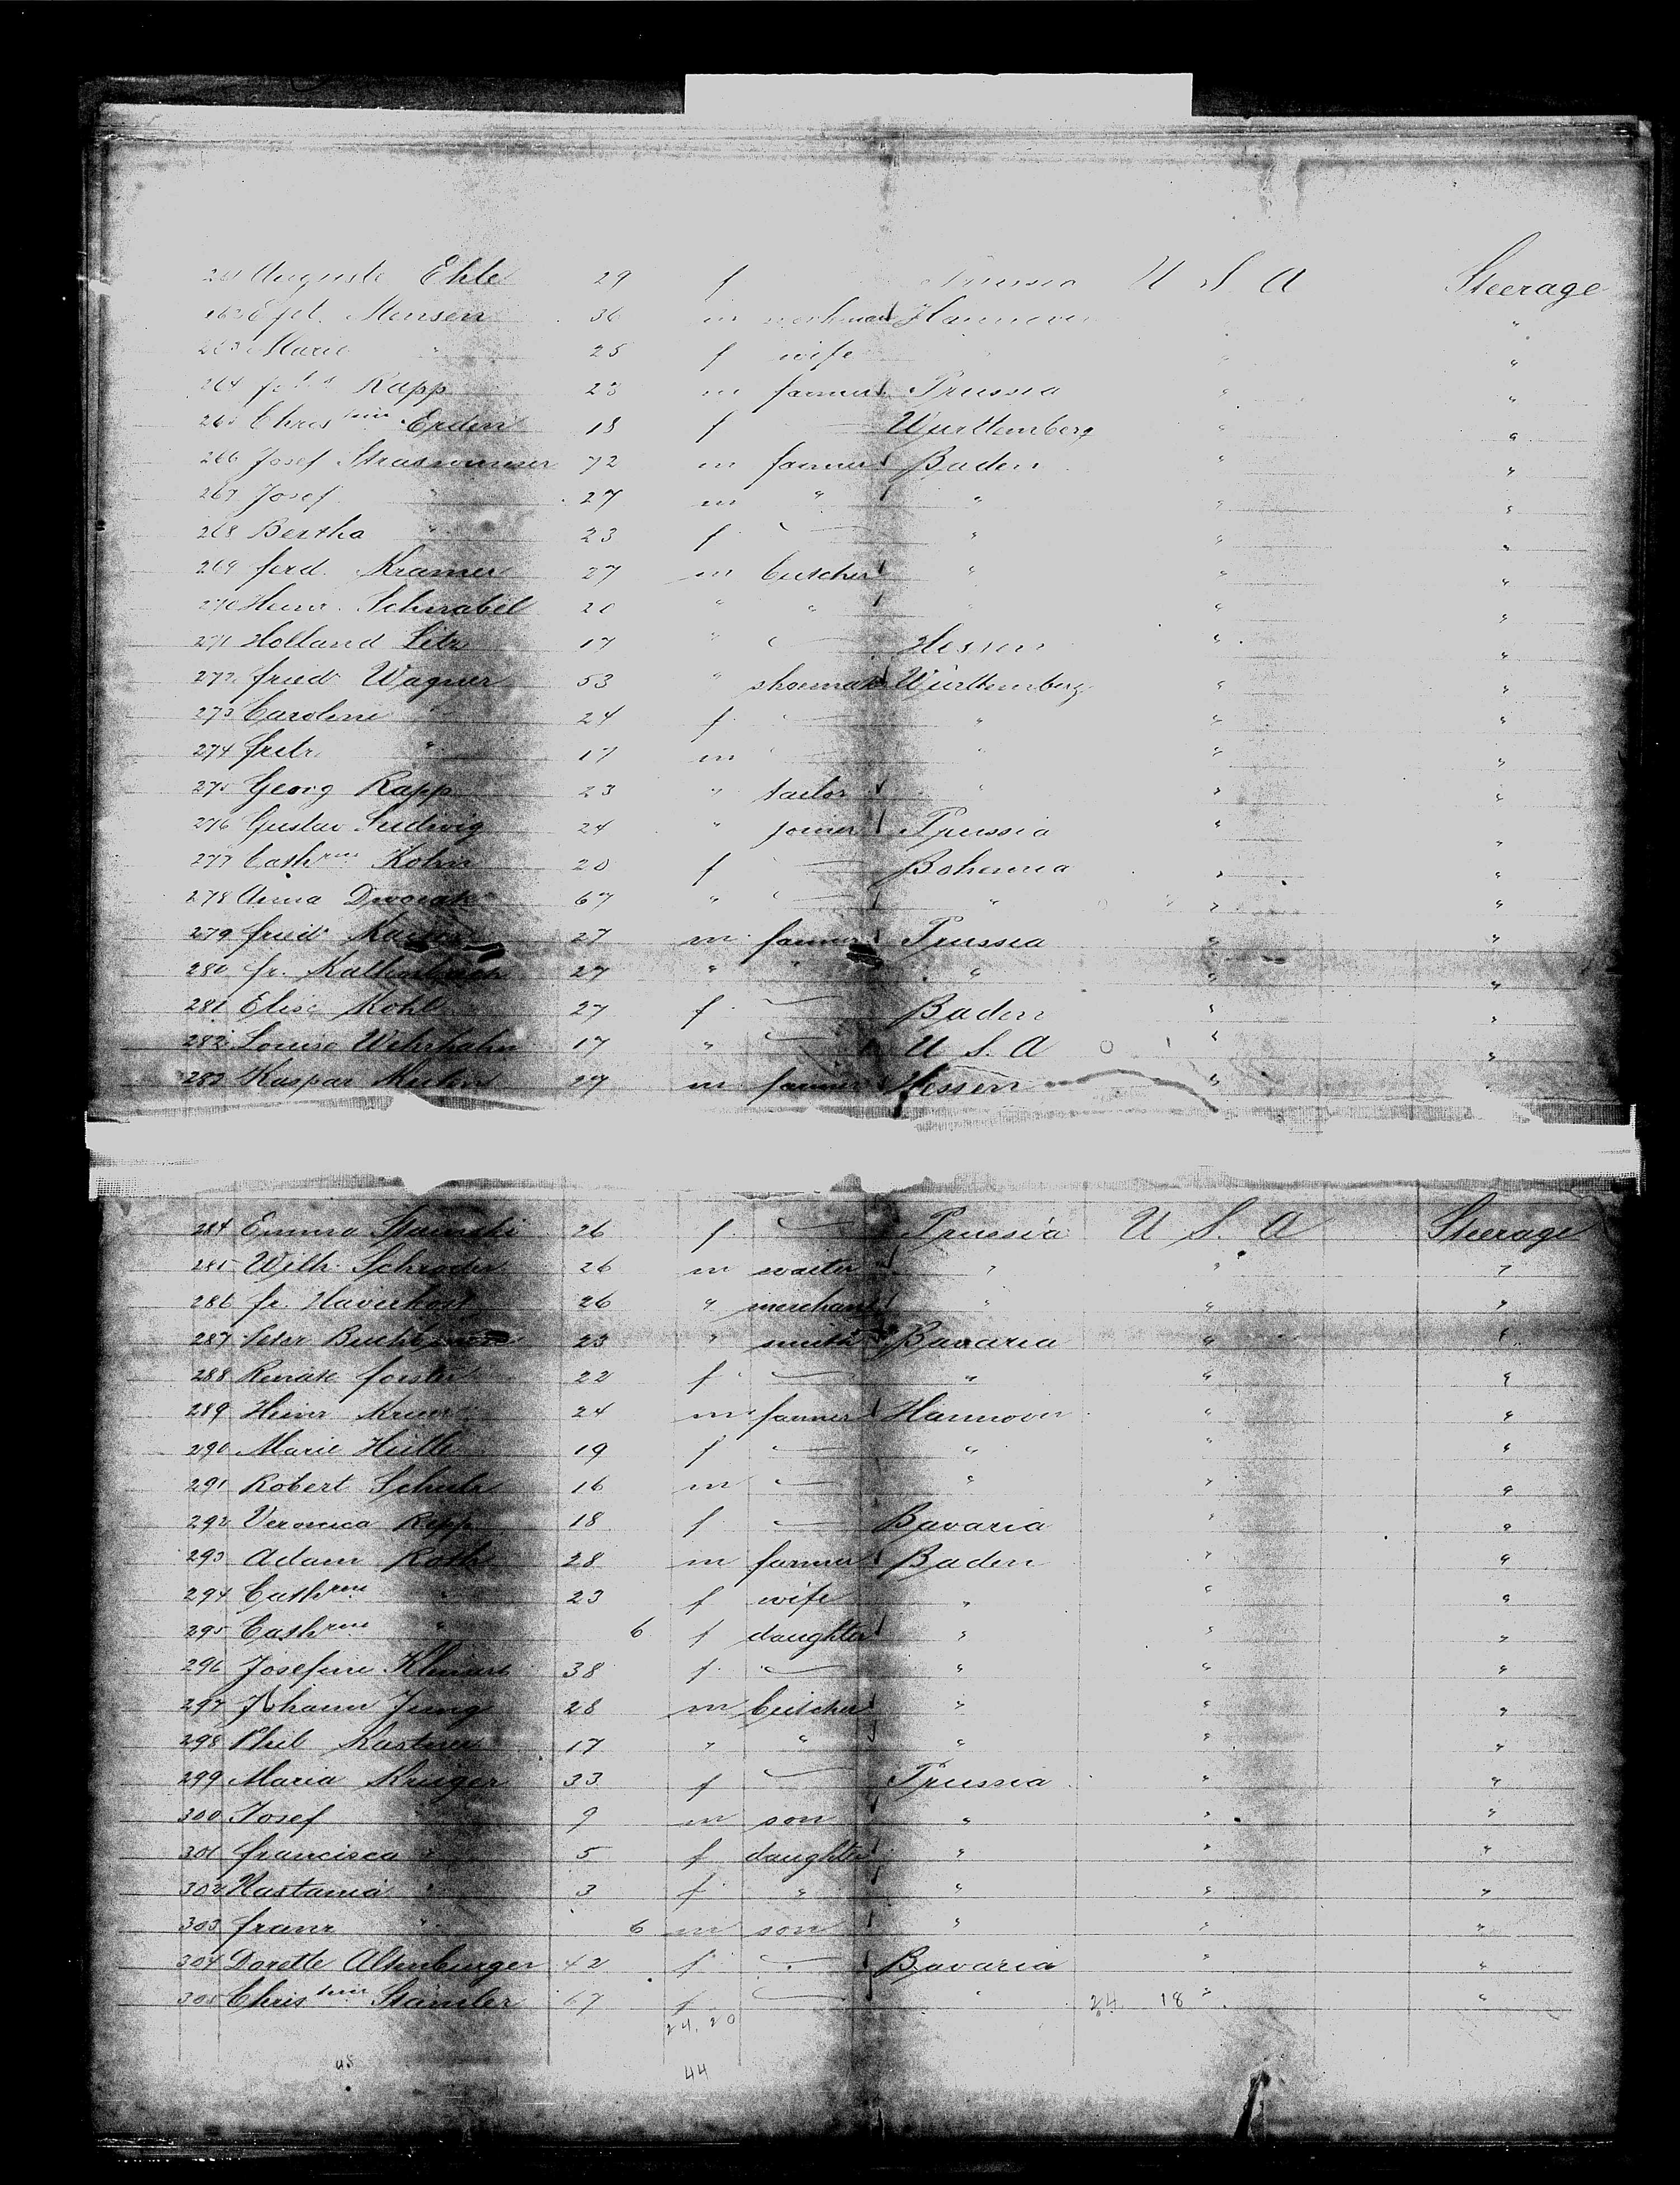 261 Auguste Ehle 29 f Prussia U S A Steerage
262 Mensen 36 m workman Hannover "
263 Marie " 25 f wife " "
264 Rapp 23 m farmer Prussia " "
265 Christine Erdin 18 f — Württemberg " "
266 Josef 72 m farmer Baden " "
267 Josef " 27 m " " " "
268 Bertha " 23 f — " " "
269 Ferd. Kramer 27 m butcher " " "
270 Heinr. Schnabel 20 " " " " "
271 Holland 17 " — Hessen " "
272 Friedr Wagner 53 " shoemaker Württemberg " "
273 Caroline " 24 f — " " "
274 Fritz " 17 m " " " "
275 Georg Rapp 23 " tailor " " "
276 Gustav Ludwig 24 " joiner Prussia " "
277 Cathrine Kohn 20 f — Bohemia " "
278 Anna Dworak 67 " — " " "
279 Friedr 27 m farmer Prussia " "
280 Fr. Kaltenbach 27 " " " " "
281 Elise Kohl 27 f — Baden " "
282 Louise Wehrhahn 17 " — U S. A " "
283 Kaspar 27 m farmer Hessen " "
284 Emma 26 f — Prussia U S. A Steerage
285 Wilh. Schroder 26 m waiter " " "
286 Fr. Haverkost 26 " merchant " " "
287 Peter 23 " smith Bavaria " "
288 Renate Forster 22 f — " " "
289 Heinr 24 m farmer Hannover " "
290 Marie 19 f — " " "
291 Robert Schulz 16 m — " " "
292 Veronica Rapp 18 f — Bavaria " "
293 Adam Roth 28 m farmer Baden " "
294 Cathrine " 23 f wife " " "
295 Cathrine " 6 f daughter " " "
296 Josefine 38 f — " " "
297 Johann Jung 28 m butcher " " "
298 Phil Kastner 17 " " " " "
299 Maria Kruger 33 f — Prussia " "
300 Josef " 9 m son " " "
301 Francisca " 5 f daughter " " "
302 " 3 f " " " "
303 Franz " 6 m son " " "
304 Dorette Altenburger 42 f — Bavaria " "
305 Christine Stamler 67 f — " 24 18 " "
24, 20
45 44